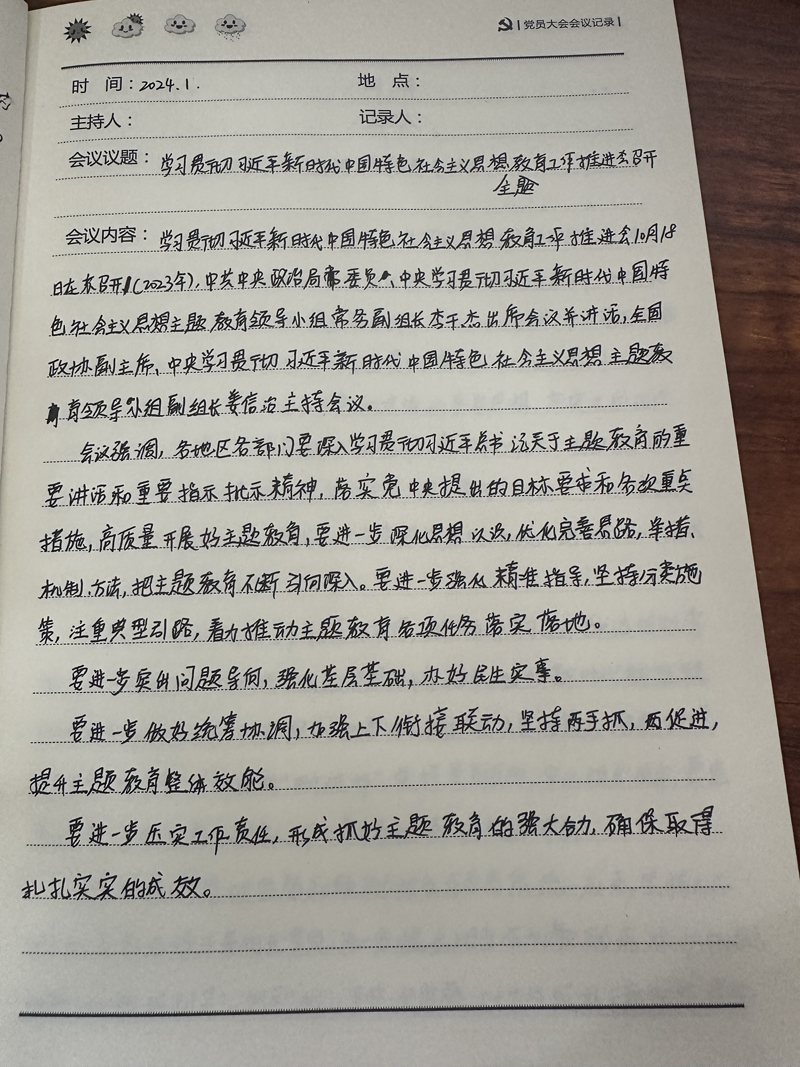 党员大会会议记录
时 间：2024.1.
地 点：
主持人：
记录人：
会议议题：学习贯彻习近平新时代中国特色社会主义思想教育工作推进会召开
主题
会议内容：学习贯彻习近平新时代中国特色社会主义思想教育工作推进会10月18
日在京召开(2023年)，中共中央政治局常委、中央学习贯彻习近平新时代中国特
色社会主义思想主题教育领导小组常务副组长李干杰出席会议并讲话，全国
政协副主席、中央学习贯彻习近平新时代中国特色社会主义思想主题教
育领导小组副组长姜信治主持会议。
会议强调，各地区各部门要深入学习贯彻习近平总书记关于主题教育的重
要讲话和重要指示批示精神，落实党中央提出的目标要求和各项重点
措施，高质量开展好主题教育，要进一步深化思想认识，优化完善思路，举措、
机制、方法，把主题教育不断引向深入。要进一步强化精准指导，坚持分类施
策，注重典型引路，着力推动主题教育各项任务落实落地。
要进一步突出问题导向，强化基层基础，办好民生实事。
要进一步做好统筹协调，加强上下衔接联动，坚持两手抓，两促进，
提升主题教育整体效能。
要进一步压实工作责任，形成抓好主题教育的强大合力，确保取得
扎扎实实的成效。